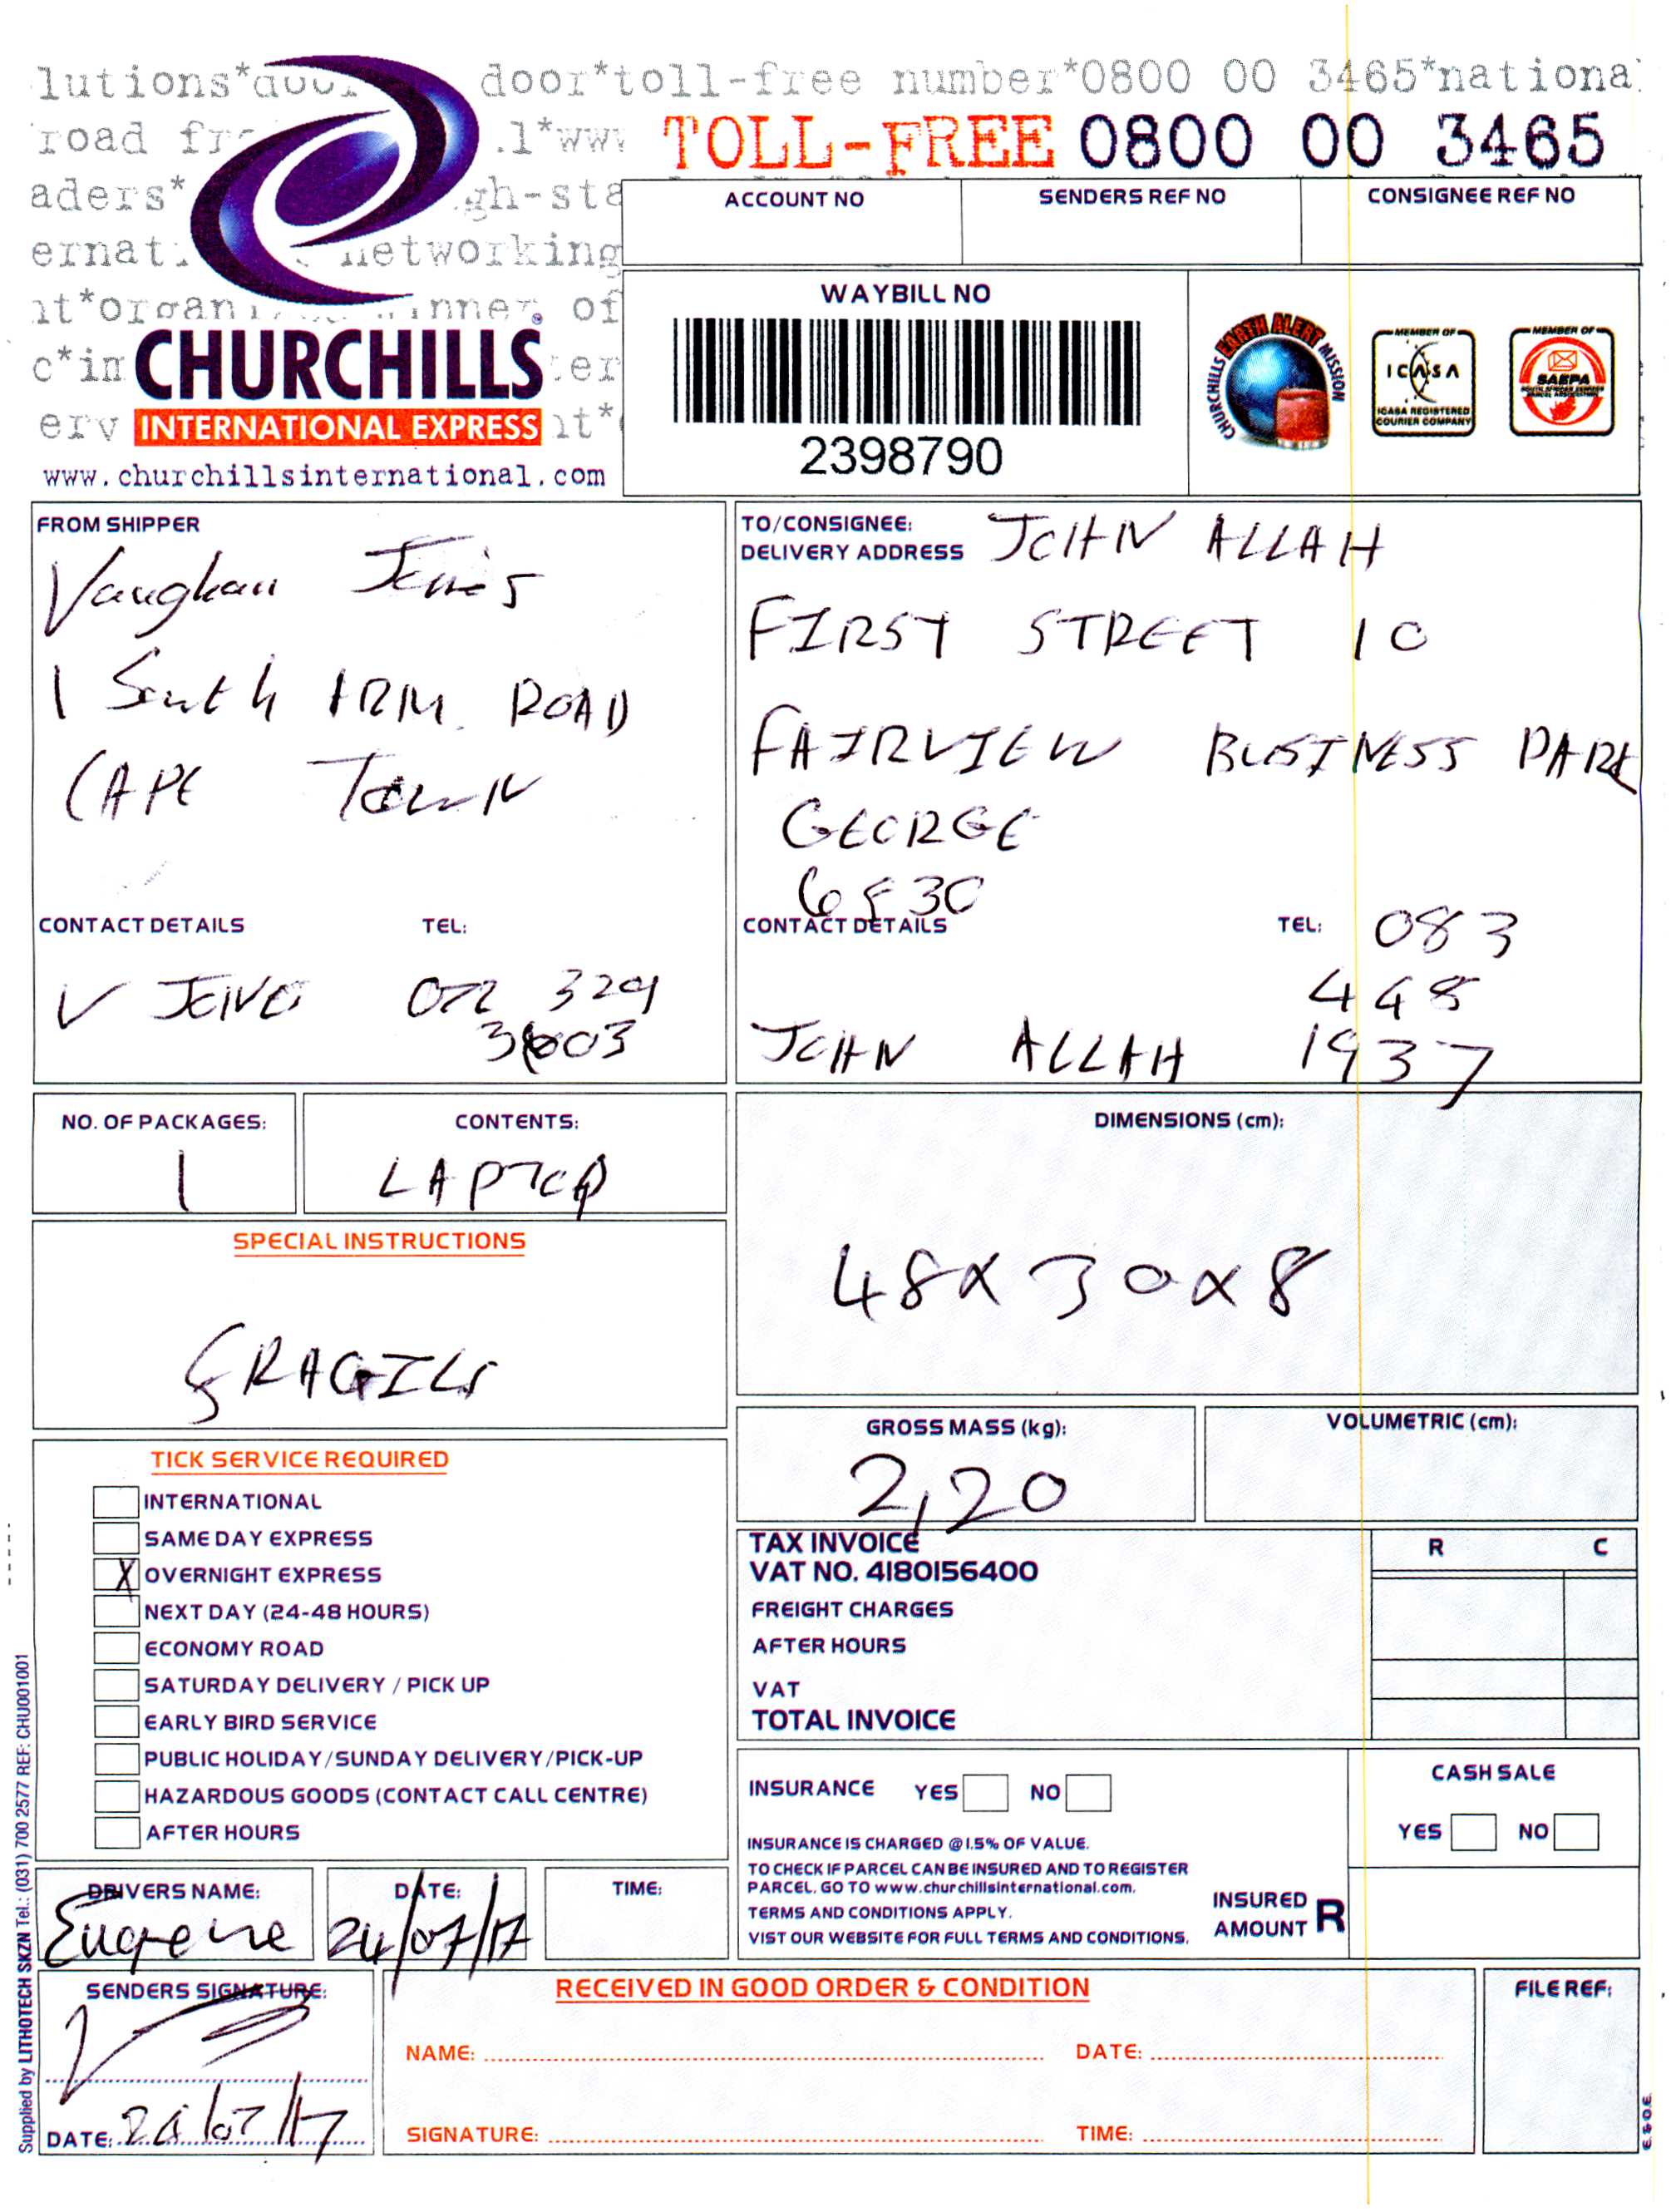 lutions*door door*toll-free number*0800 00 3465*nationa
road .1*www TOLL-FREE 0800 00 3465
aders* gh-sta
ACCOUNT NO SENDERS REF NO CONSIGNEE REF NO
ernat networking
nt*organi inner of
c*in ter
CHURCHILLS
erv INTERNATIONAL EXPRESS nt*
www.churchillsinternational.com
WAYBILL NO
2398790
CHURCHILLS EARTH ALERT MISSION
MEMBER OF
ICASA
ICASA REGISTERED
COURIER COMPANY
MEMBER OF
SAEPA
FROM SHIPPER
Vaughan Jones
1 South ARM ROAD
CAPE TOWN
CONTACT DETAILS TEL:
V JONES 072 329
3603
TO/CONSIGNEE:
DELIVERY ADDRESS JOHN ALLAH
FIRST STREET 10
FAIRVIEW BUSINESS PARK
GEORGE
6530
CONTACT DETAILS TEL: 083
448
JOHN ALLAH 1937
NO. OF PACKAGES: CONTENTS:
1 LAPTOP
DIMENSIONS (cm):
48x30x8
SPECIAL INSTRUCTIONS
FRAGILE
GROSS MASS (kg): VOLUMETRIC (cm):
2,20
TICK SERVICE REQUIRED
INTERNATIONAL
SAME DAY EXPRESS
X OVERNIGHT EXPRESS
NEXT DAY (24-48 HOURS)
ECONOMY ROAD
SATURDAY DELIVERY / PICK UP
EARLY BIRD SERVICE
PUBLIC HOLIDAY/SUNDAY DELIVERY/PICK-UP
HAZARDOUS GOODS (CONTACT CALL CENTRE)
AFTER HOURS
TAX INVOICE R C
VAT NO. 4180156400
FREIGHT CHARGES
AFTER HOURS
VAT
TOTAL INVOICE
INSURANCE YES NO
INSURANCE IS CHARGED @ 1.5% OF VALUE.
TO CHECK IF PARCEL CAN BE INSURED AND TO REGISTER
PARCEL, GO TO www.churchillsinternational.com.
TERMS AND CONDITIONS APPLY.
VIST OUR WEBSITE FOR FULL TERMS AND CONDITIONS.
INSURED
AMOUNT R
CASH SALE
YES NO
DRIVERS NAME: DATE: TIME:
Eugene 24/07/17
SENDERS SIGNATURE:
DATE: 24/07/17
RECEIVED IN GOOD ORDER & CONDITION
NAME: DATE:
SIGNATURE: TIME:
FILE REF:
E.&O.E.
Supplied by LITHOTECH SKZN Tel.: (031) 700 2577 REF: CHU001001